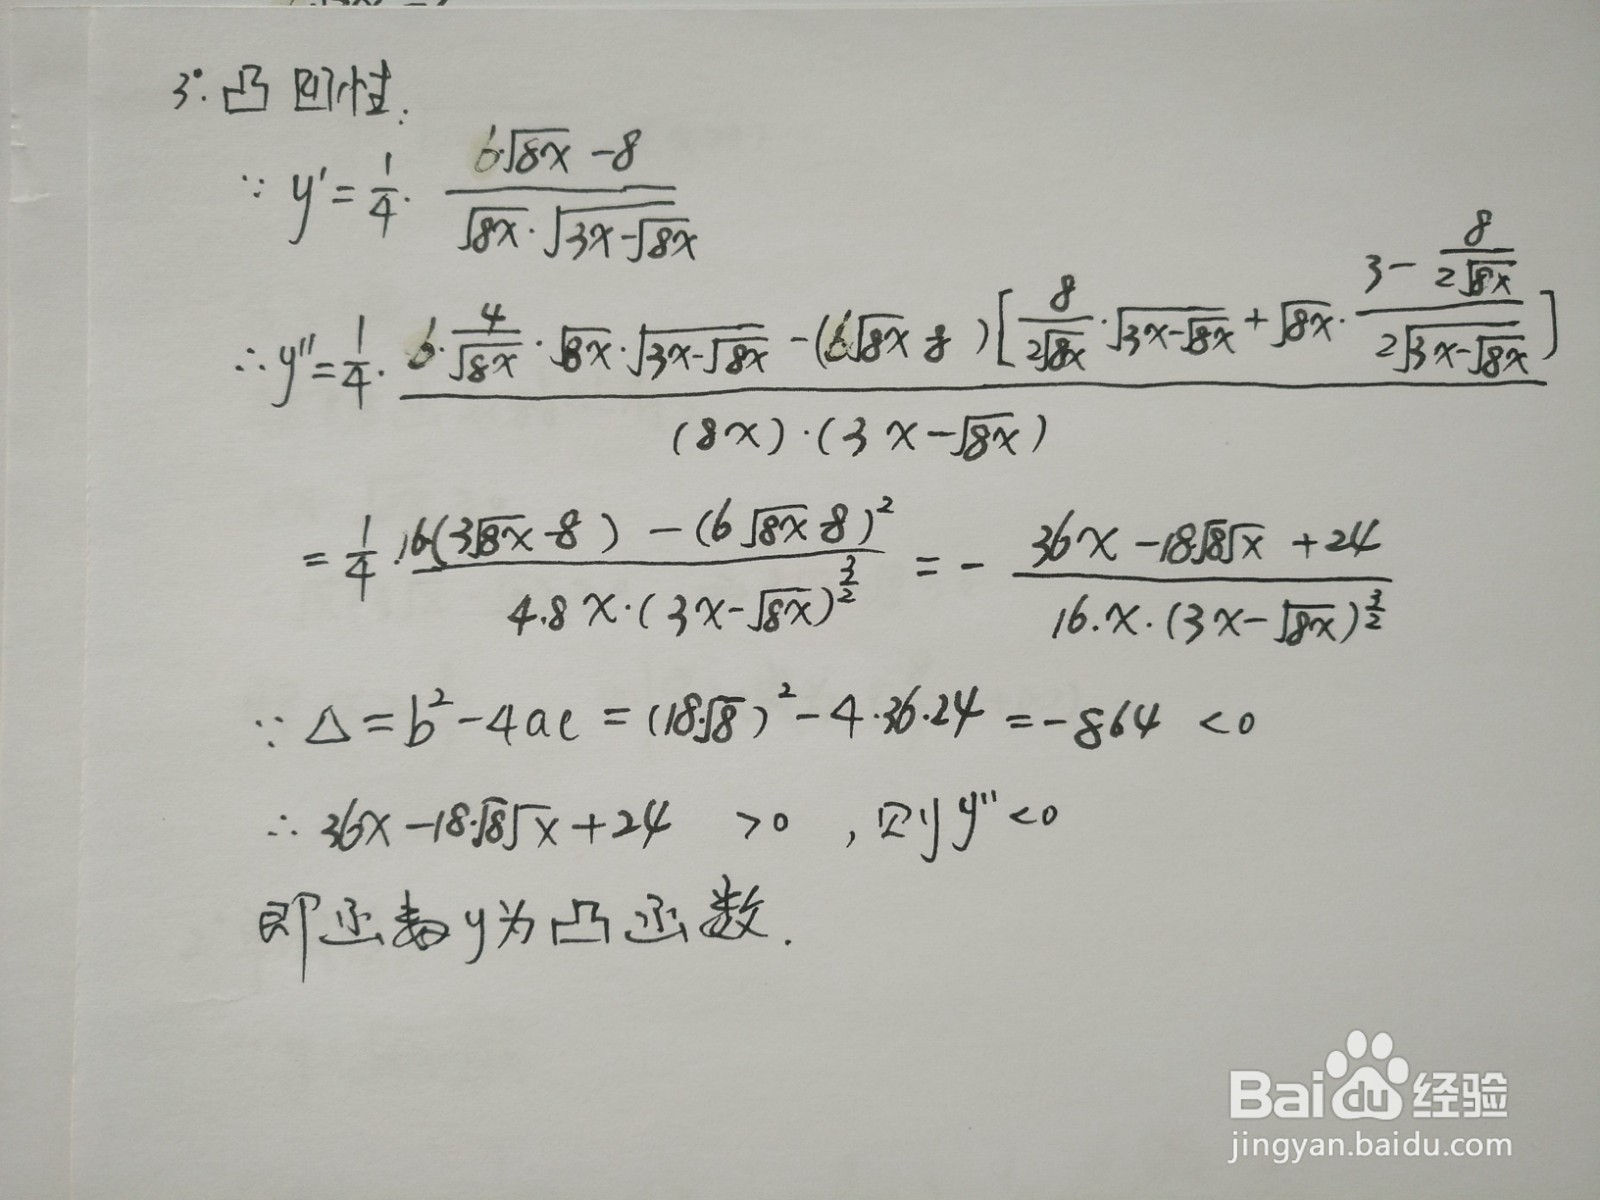 3°. 凸凹性:
∵ y' = 1/4 · (6√8x - 8)/(√8x · √(3x-√8x))
∴ y'' = 1/4 · (6 · 4/√8x · √8x · √(3x-√8x) - (6√8x 8)[8/(2√8x) · √(3x-√8x) + √8x · (3 - 8/(2√8x))/(2√(3x-√8x))])/((8x)·(3x-√8x))
= 1/4 · (16(3√8x - 8) - (6√8x - 8)²)/(4·8x·(3x-√8x)^(3/2)) = - (36x - 18√8√x + 24)/(16·x·(3x-√8x)^(3/2))
∵ Δ = b² - 4ac = (18·√8)² - 4·36·24 = -864 < 0
∴ 36x - 18·√8√x + 24 > 0 , 则 y'' < 0
即函数y为凸函数.
Bai du 经验
jingyan.baidu.com